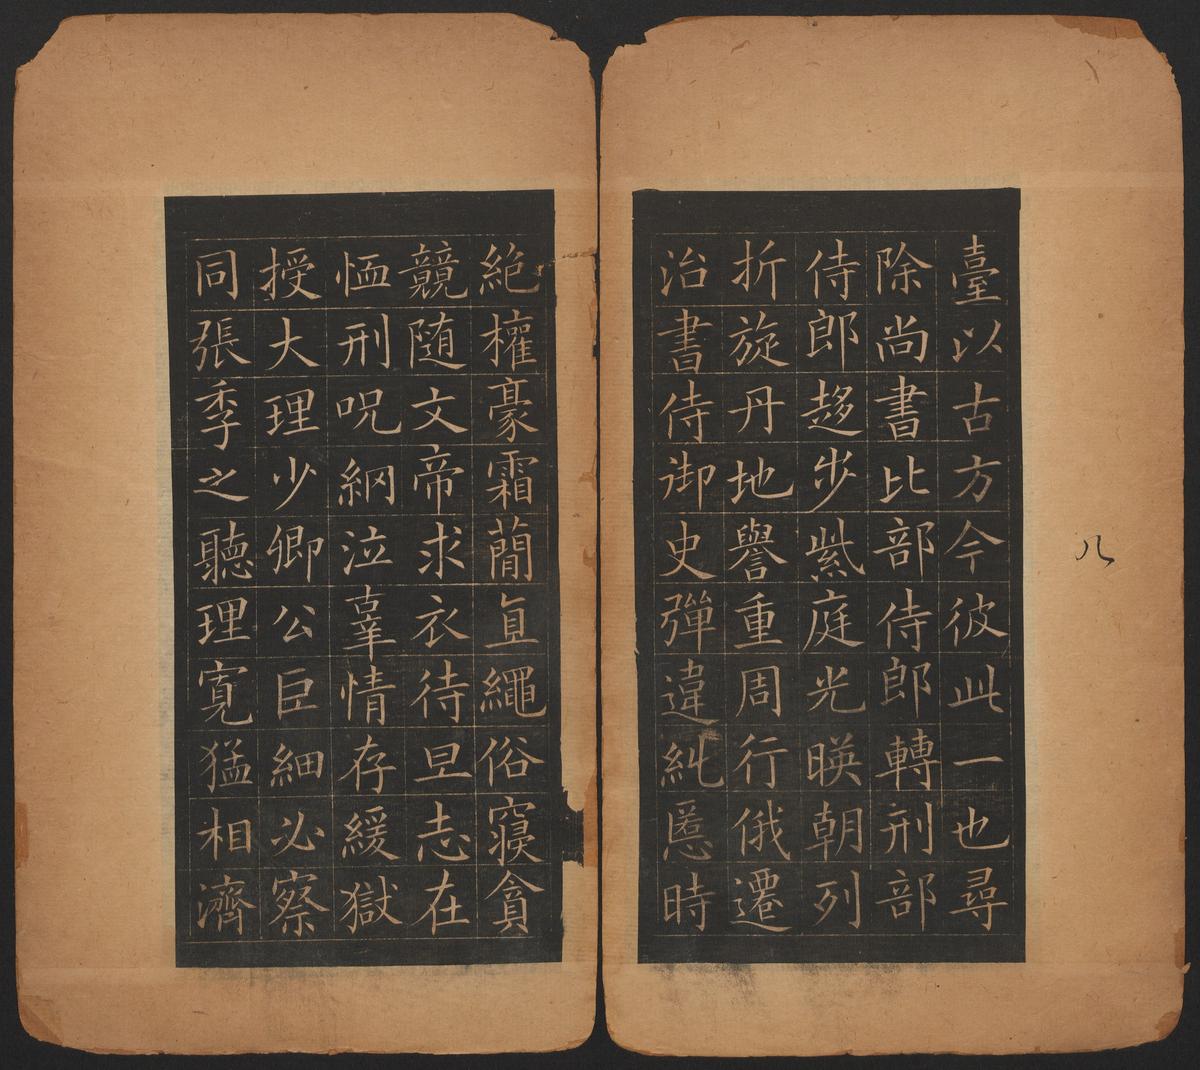 八
臺以古方今彼此一也尋
除尚書比部侍郎轉刑部
侍郎趍步紫庭光暎朝列
折旋丹地譽重周行俄遷
治書侍御史彈違糾慝時
絶權豪霜簡直繩俗寝貪
競随文帝求衣待旦志在
恤刑呪網泣辜情存緩獄
授大理少卿公巨細必察
同張季之聽理寛猛相濟